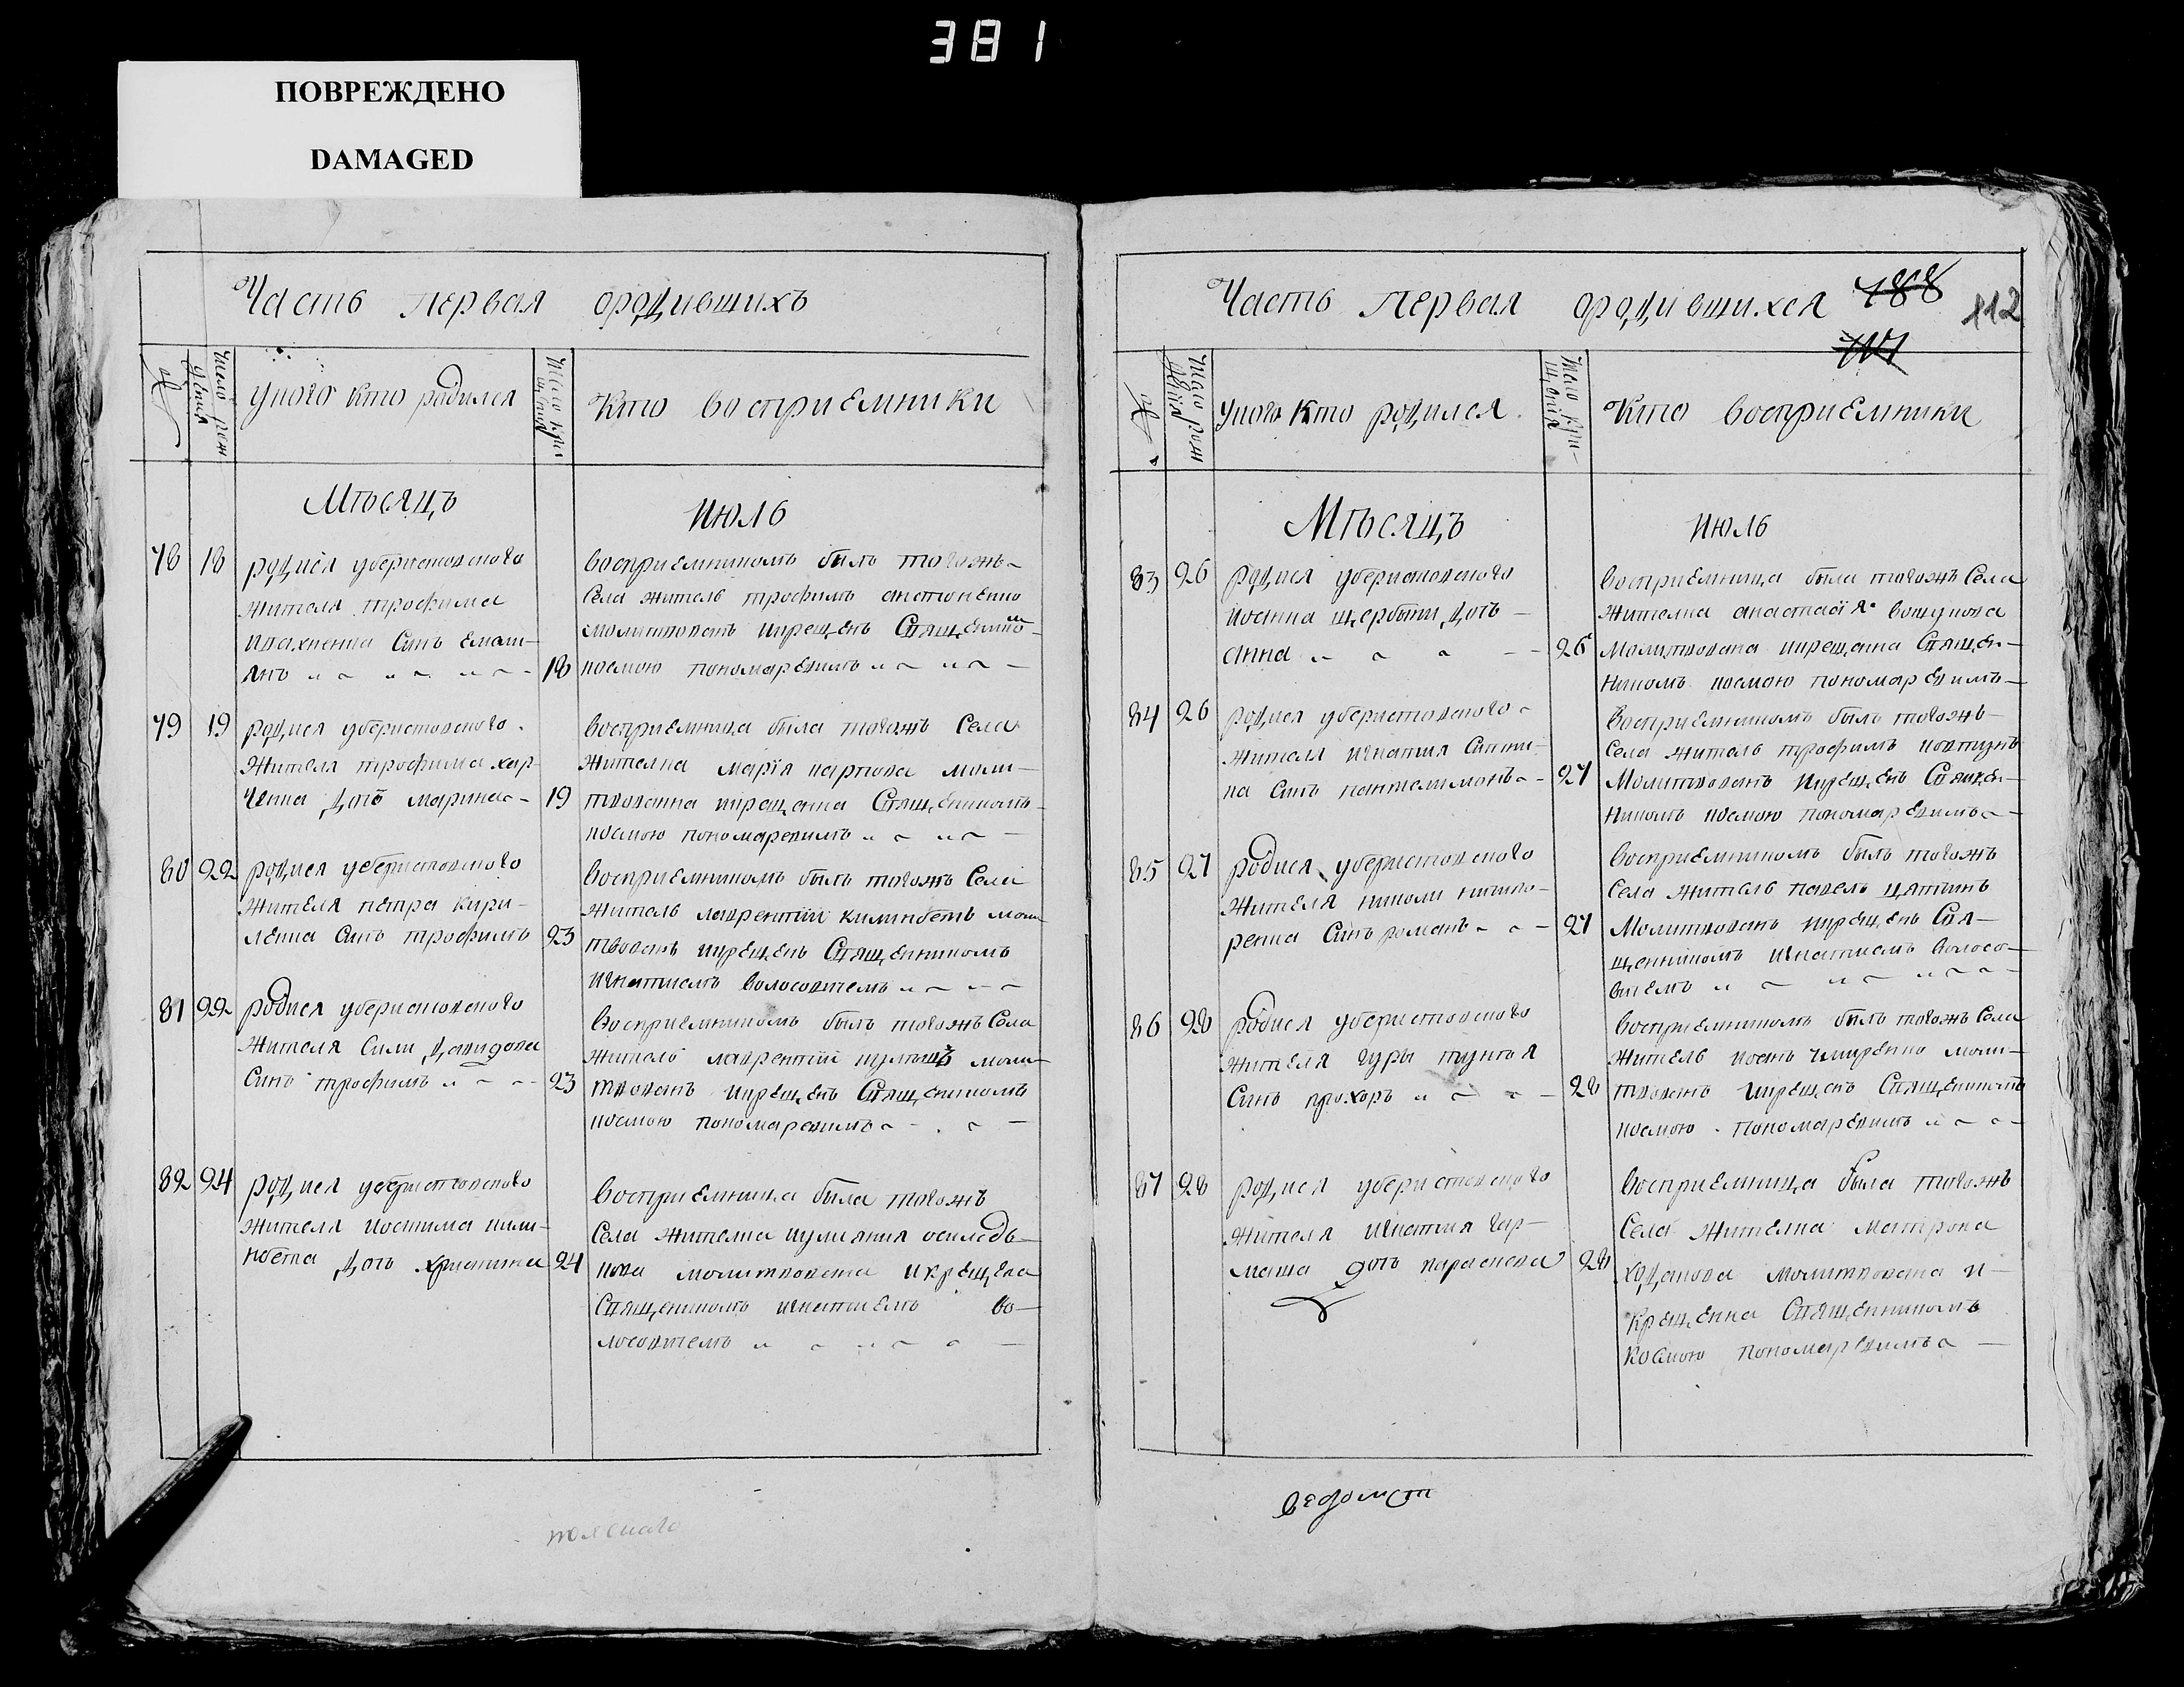 381
ПОВРЕЖДЕНО
DAMAGED
Часть первая ородившихъ
№
Число рождения
Укого кто радился
Число крищения
Кто восприемники
Мѣсяцъ
июль
78 18 родися уберистовского
жителя трофима
ивахненка Синъ емели-
янъ 18
восприемникомъ билъ тогожъ
Села житель трофимъ антоненко
молитвованъ икрещенъ Священико-
космою пономаревимъ
79 19 родися уберистовского
Жителя трофима хар-
ченка дочъ марина 19
восприемница била тогожъ Села
Жителка марія карпова моли-
твованна икрещенна Священикомъ
космою пономаревимъ
80 22 родися уберистовского
жителя петра кири-
ленка Синъ трофимъ 23
восприемникомъ билъ тогожъ Села
Житель лаврентий килимбетъ моли
твованъ икрещенъ Священникомъ
игнатиемъ волосовичемъ
81 22 родися уберистовского
Жителя Сили давидова
Синъ трофимъ 23
восприемникомъ билъ тогожъ Села
житель лаврентий моли-
твованъ икрещенъ Священикомъ
космою пономаревимъ
82 24 родися уберистовского
жителя иоакима кили-
нбета дочъ христина 24
восприемница била тогожъ
Села жителка иулияния
кова молитвована икрещена
Священикомъ игнатиемъ во-
лосовичемъ
Часть первая ородившихся 188
112
№
Число рождения
Укого кто родился
Число крищения
Кто восприемники
Мѣсяцъ
июль
83 26 родися уберистовского
иоанна щербини дочъ
анна 26
восприемница била тогожъ Села
Жителка анастасія вовкунова
Молитвована икрещенна Священ-
никомъ космою пономаревимъ
84 26 родися уберистовского
жителя игнатия Синни-
ка Синъ пантелимонъ 27
восприемникомъ билъ тогожъ
Села житель трофимъ ковтунъ
Молитвованъ икрещенъ Священ-
никомъ космою пономаревимъ
85 27 родися уберистовского
Жителя николи ничипо-
ренка Синъ романъ 27
восприемникомъ билъ тогожъ
Села житель павелъ
Молитвованъ икрещенъ Свя-
щенникомъ игнатиемъ волосо-
вичемъ
86 28 родися уберистовского
жителя гуры тунтоя
Синъ прохоръ 28
восприемникомъ билъ тогожъ Села
житель моли-
твованъ икрещенъ Священикомъ
космою пономаревимъ
87 28 родися уберистовского
жителя игнатия гар-
маша дочъ параскева 28
восприемница била тогожъ
Села Жителка матрона
ходакова молитвована и-
крещенна Священникомъ
космою пономаревимъ